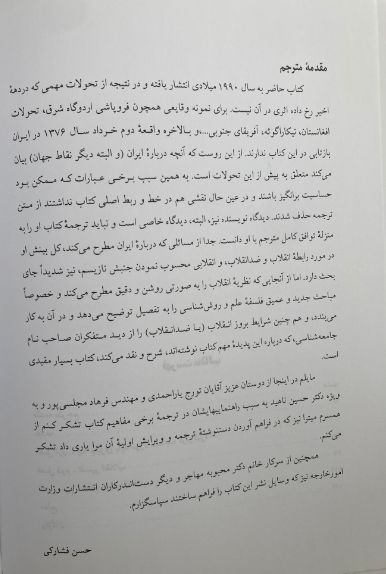 مقدمهٔ مترجم
کتاب حاضر به سال ۱۹۹۰ میلادی انتشار یافته و در نتیجه از تحولات مهمی که در دههٔ
اخیر رخ داده اثری در آن نیست. برای نمونه وقایعی همچون فروپاشی اردوگاه شرق، تحولات
افغانستان، نیکاراگوئه، آفریقای جنوبی...،و بالاخره واقعهٔ دوم خرداد سال ۱۳۷۶ در ایران
بازتابی در این کتاب ندارند. از این روست که آنچه دربارهٔ ایران (و البته دیگر نقاط جهان) بیان
می‌کند متعلق به پیش از این تحولات است. به همین سبب برخی عبارات که ممکن بود
حساسیت برانگیز باشند و در عین حال نقشی هم در خط و ربط اصلی کتاب نداشتند از متن
ترجمه حذف شدند. دیدگاه نویسنده نیز، البته، دیدگاه خاصی است و نباید ترجمهٔ کتاب او را به
منزلهٔ توافق کامل مترجم با او دانست. جدا از مسائلی که دربارهٔ ایران مطرح می‌کند، کل بینش او
در مورد رابطهٔ انقلاب و ضدانقلاب، و انقلابی محسوب نمودن جنبش نازیسم، نیز شدیداً جای
بحث دارد. اما از آنجایی که نظریهٔ انقلاب را به صورتی روشن و دقیق مطرح می‌کند و خصوصاً
مباحث جدید و عمیق فلسفهٔ علم و روش‌شناسی را به تفصیل توضیح می‌دهد و در آن به کار
می‌بندد، و هم چنین شرایط بروز انقلاب (یا ضدانقلاب) را از دید متفکران صاحب نام
جامعه‌شناسی، که درباره، این پدیدهٔ مهم کتاب نوشته‌اند، شرح و نقد می‌کند، کتاب بسیار مفیدی
است.
مایلم در اینجا از دوستان عزیز آقایان تورج یاراحمدی و مهندس فرهاد مجلسی‌پور و به
ویژه دکتر حسین ناهید به سبب راهنماییهایشان در ترجمهٔ برخی مفاهیم کتاب تشکر کنم از
همسرم میترا نیز که در فراهم آوردن دستنوشتهٔ ترجمه و ویرایش اولیهٔ آن مرا یاری داد تشکر
می‌کنم.
همچنین از سرکار خانم دکتر محبوبه مهاجر و دیگر دست‌اندرکاران انتشارات وزارت
امورخارجه نیز که وسایل نشر این کتاب را فراهم ساختند سپاسگزارم.
حسن فشارکی